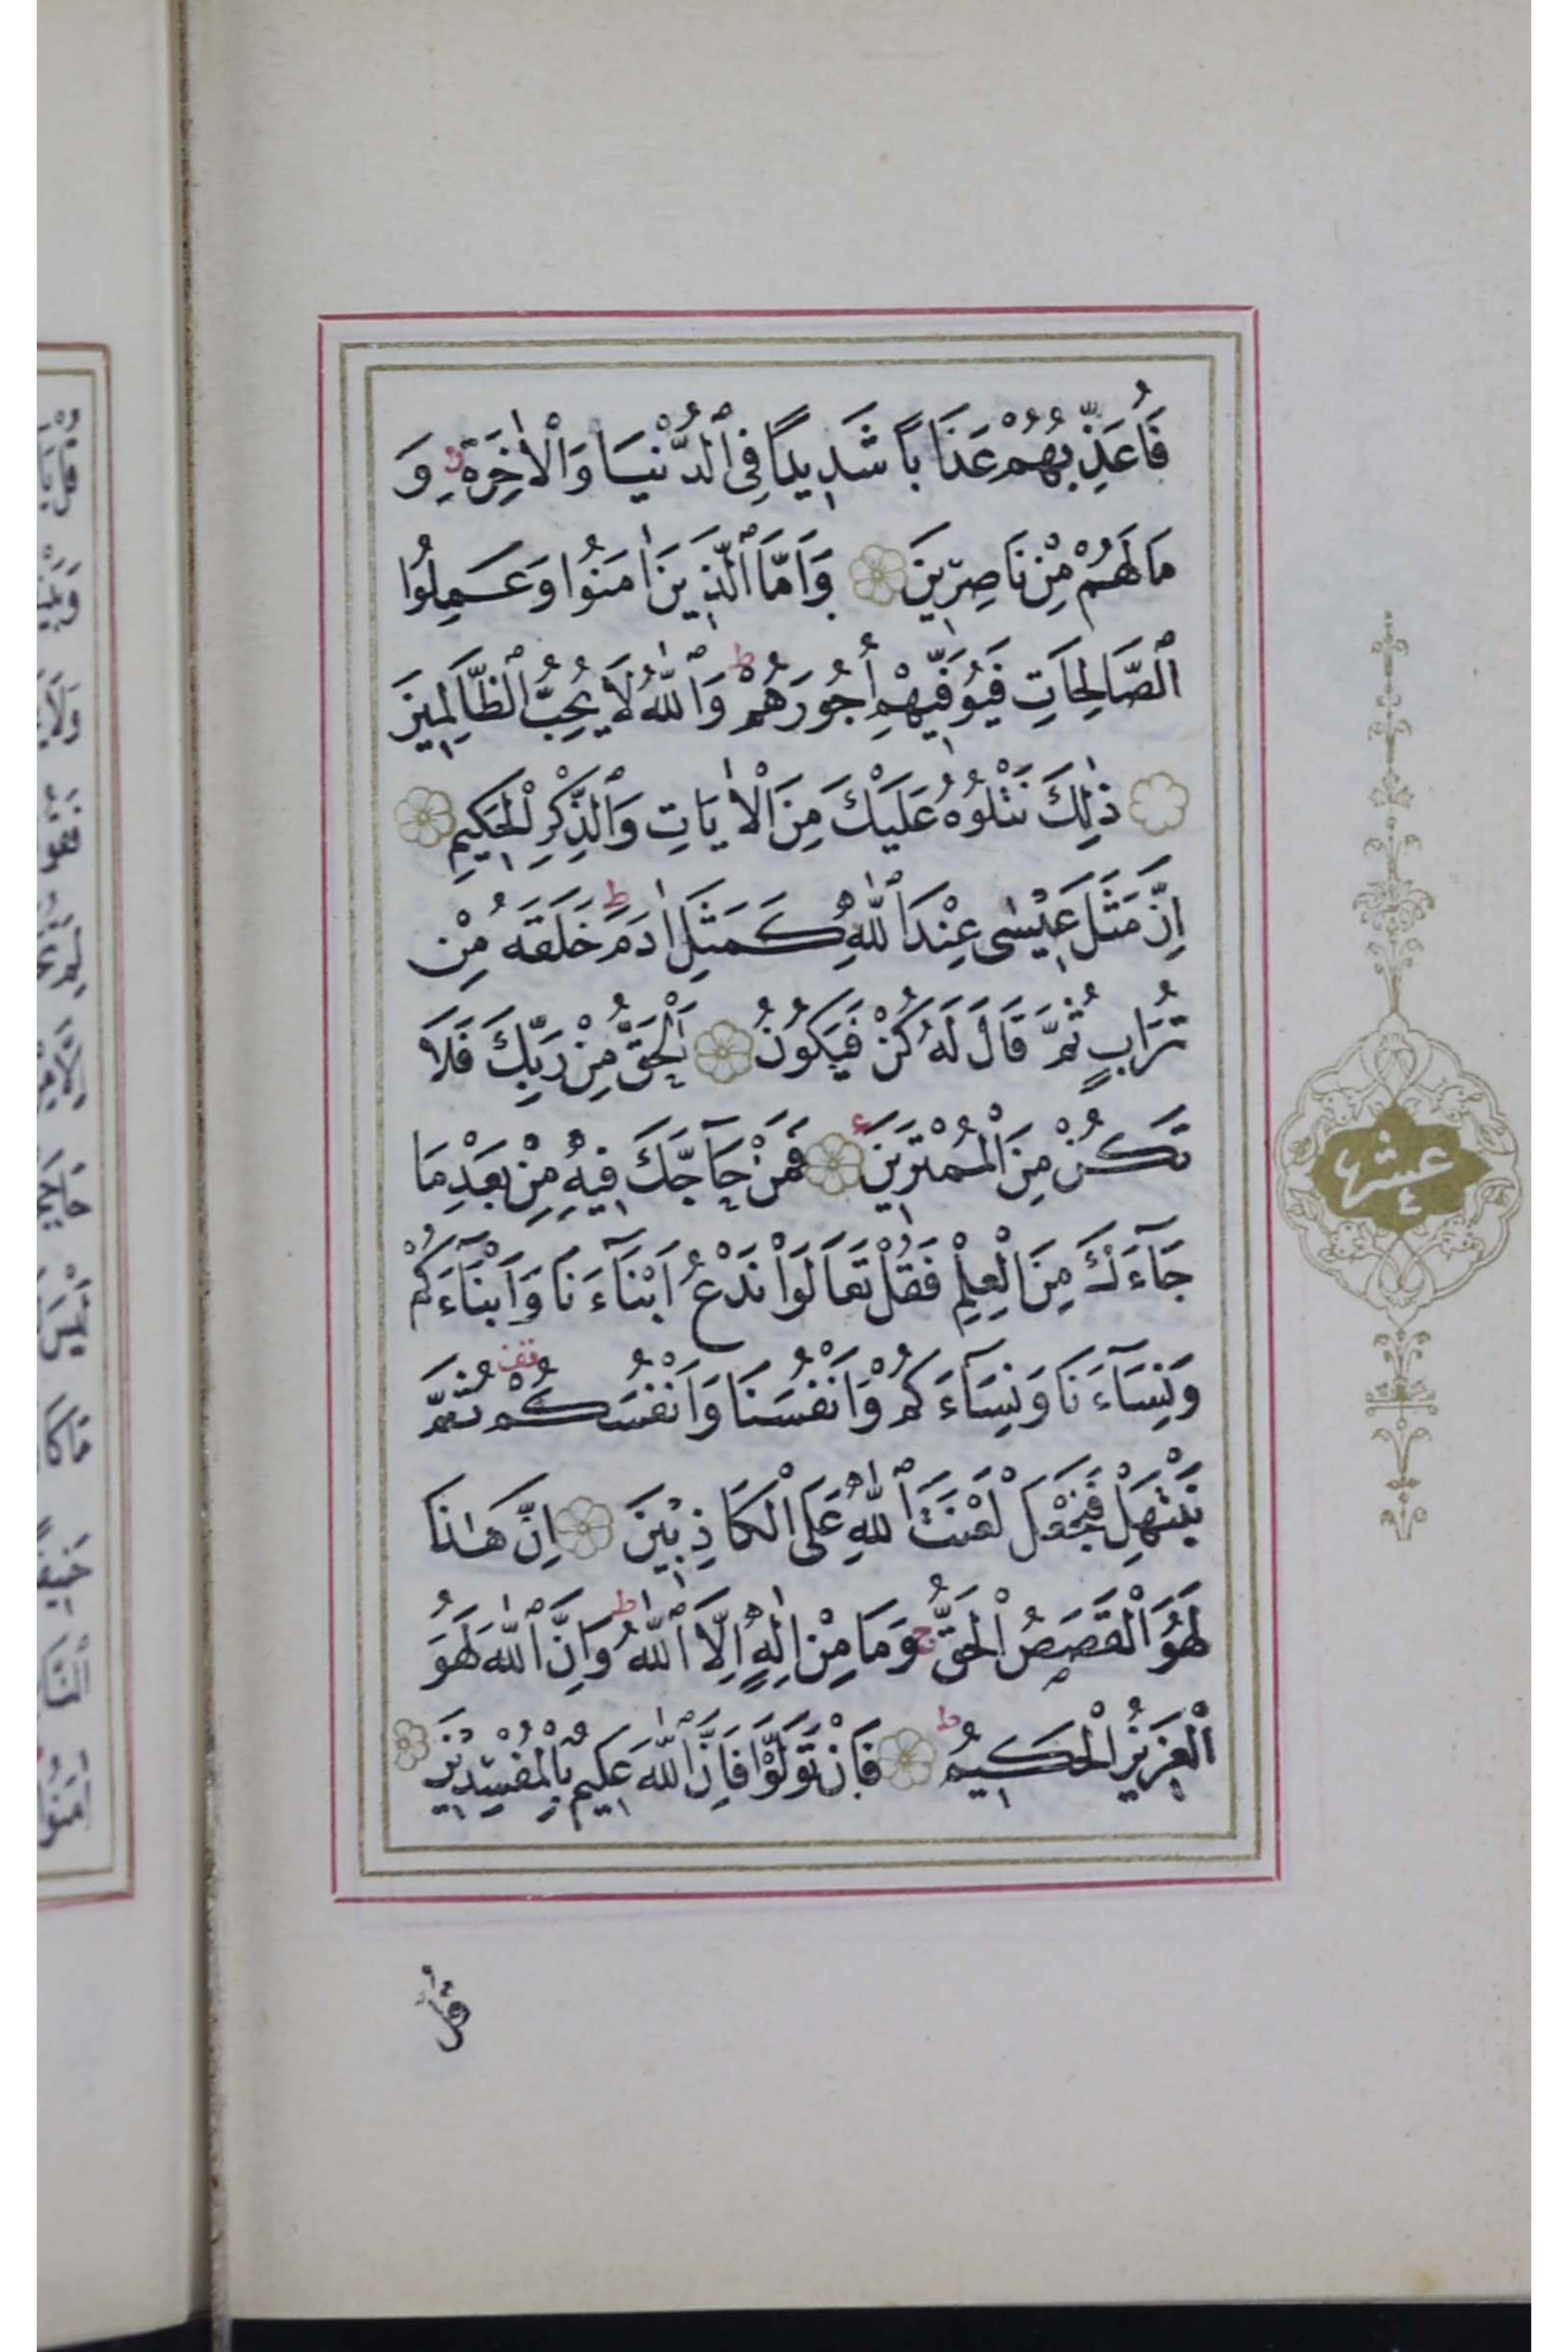 فَاُعَذِّبُهُمْ عَذَابًا شَدِيدًا فِى ٱلدُّنْيَا وَالْاٰخِرَةِ ط وَ
مَا لَهُمْ مِنْ نَاصِرِينَ وَاَمَّا ٱلَّذِينَ اٰمَنُوا وَعَمِلُوا
ٱلصَّالِحَاتِ فَيُوَفِّيهِمْ أُجُورَهُمْ ط وَٱللّٰهُ لَا يُحِبُّ ٱلظَّالِمِينَ
ذٰلِكَ نَتْلُوهُ عَلَيْكَ مِنَ الْاٰيَاتِ وَٱلذِّكْرِ الْحَكِيمِ
اِنَّ مَثَلَ عِيسٰى عِنْدَ ٱللّٰهِ كَمَثَلِ اٰدَمَ ط خَلَقَهُ مِنْ
تُرَابٍ ثُمَّ قَالَ لَهُ كُنْ فَيَكُونُ اَلْحَقُّ مِنْ رَبِّكَ فَلَا
تَكُنْ مِنَ الْمُمْتَرِينَ ء فَمَنْ حَآجَّكَ فِيهِ مِنْ بَعْدِ مَا
جَآءَكَ مِنَ الْعِلْمِ فَقُلْ تَعَالَوْا نَدْعُ اَبْنَآءَنَا وَاَبْنَآءَكُمْ
وَنِسَآءَنَا وَنِسَآءَكُمْ وَاَنْفُسَنَا وَاَنْفُسَكُمْ قف ثُمَّ
نَبْتَهِلْ فَنَجْعَلْ لَعْنَتَ ٱللّٰهِ عَلَى الْكَاذِبِينَ اِنَّ هٰذَا
لَهُوَ الْقَصَصُ الْحَقُّ ج وَمَا مِنْ اِلٰهٍ اِلَّا ٱللّٰهُ ط وَاِنَّ ٱللّٰهَ لَهُوَ
الْعَزِيزُ الْحَكِيمُ ط فَاِنْ تَوَلَّوْا فَاِنَّ ٱللّٰهَ عَلِيمٌ بِالْمُفْسِدِينَ
قُلْ
عشر
٤